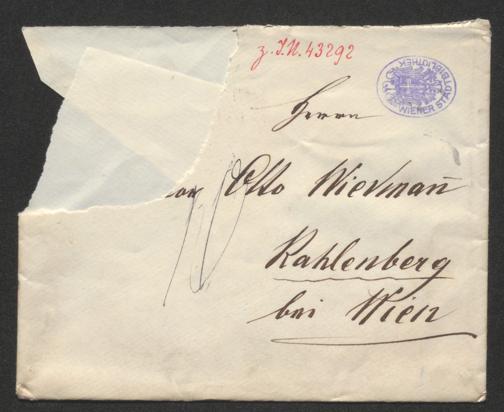 z. I.N. 43292
WIENER STADTBIBLIOTHEK
Herrn
Otto Wiedmann
Kahlenberg
bei Wien